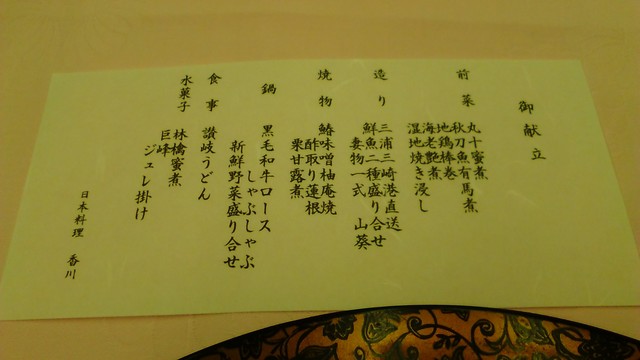 御献立
前菜
丸十蜜煮
秋刀魚有馬煮
地鶏棒巻
海老艶煮
湿地焼き浸し
造り
三浦三崎港直送
鮮魚二種盛り合せ
妻物一式 山葵
焼物
鰆味噌柚庵焼
酢取り蓮根
栗甘露煮
鍋
黒毛和牛ロース
しゃぶしゃぶ
新鮮野菜盛り合せ
食事
讃岐うどん
水菓子
林檎蜜煮
巨峰
ジュレ掛け
日本料理 香川